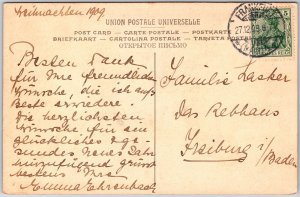 Weihnachten 1909
UNION POSTALE UNIVERSELLE
POST CARD — CARTE POSTALE — POSTKARTE
BRIEFKAART — CARTOLINA POSTALE — TARJETA POSTAL
ОТКРЫТОЕ ПИСЬМО
27.12.09
Besten Dank
für Ihre freundlichen
Wünsche, die ich auf's
Beste erwidere.
Die herzlichsten
Wünsche für ein
glückliches, ge-
sundes neues Jahr
hinzufügend grüsst
bestens Ihre
Emma Ehrenbach
Familie Kasker
Das Rebhaus
Freiburg i/
Baden